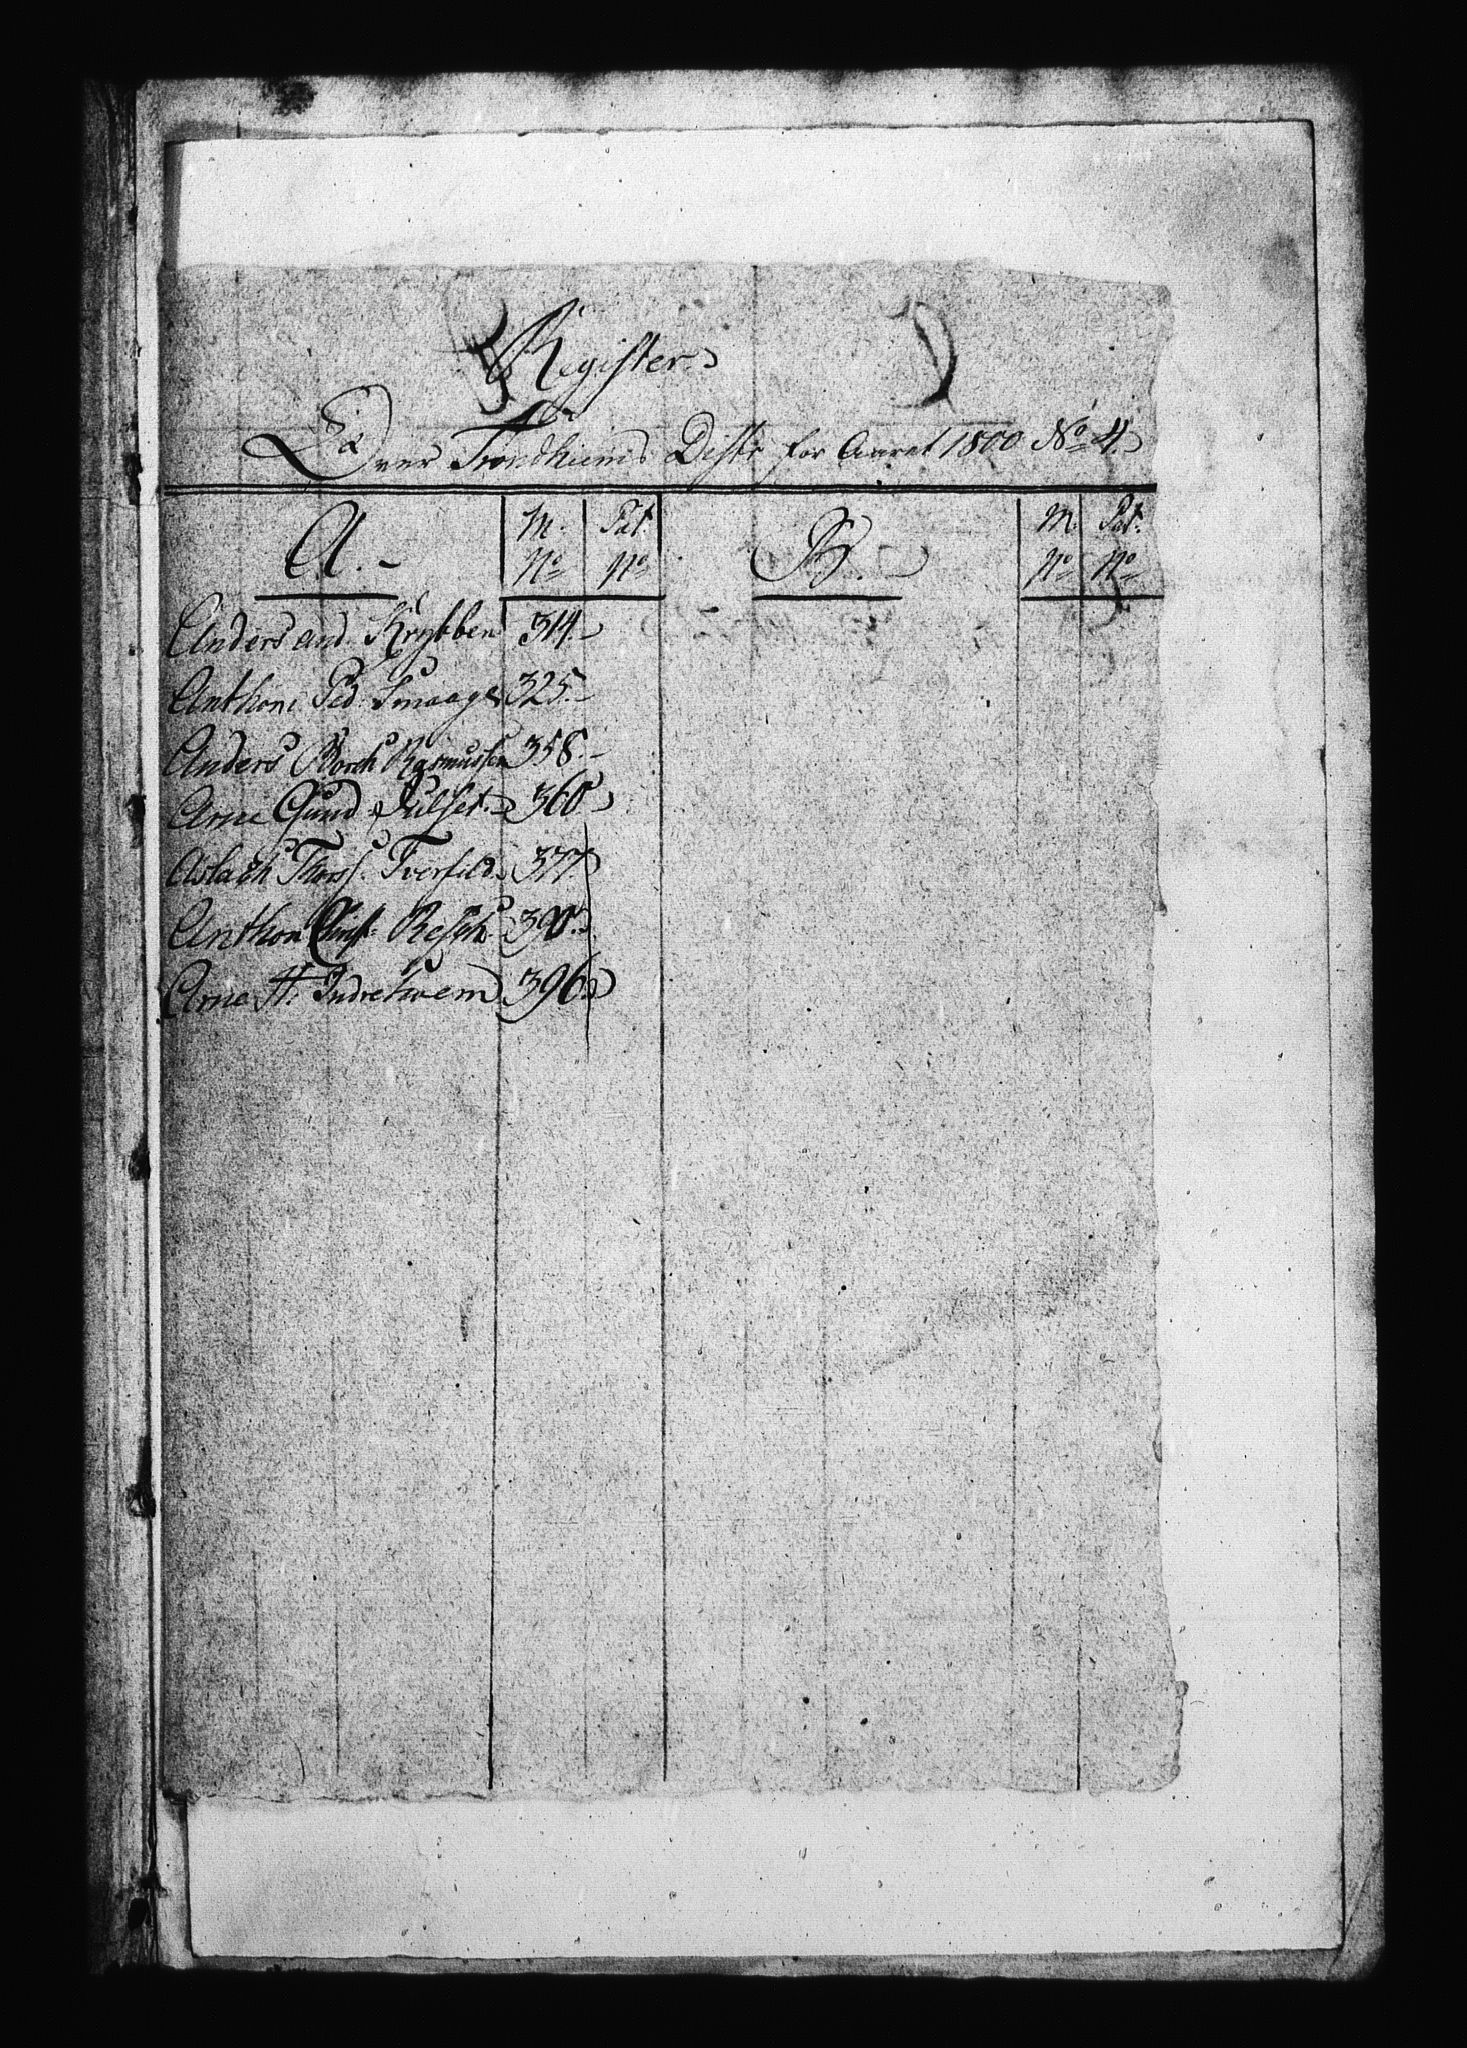 Register
Over Trondhiems Distr for Aaret 1800 No 4.
A. M. No Pat. No B. M. No Pat. No
Anders And. Krybben 314.
Anthoni Ped. Smaage 325.
Anders Borch Rasmussen 358.
Arne Gund 360.
Aslach Thorss. Tverfeld 377
Anthon Christ. 390.
Arne H. Indrehvem 396.